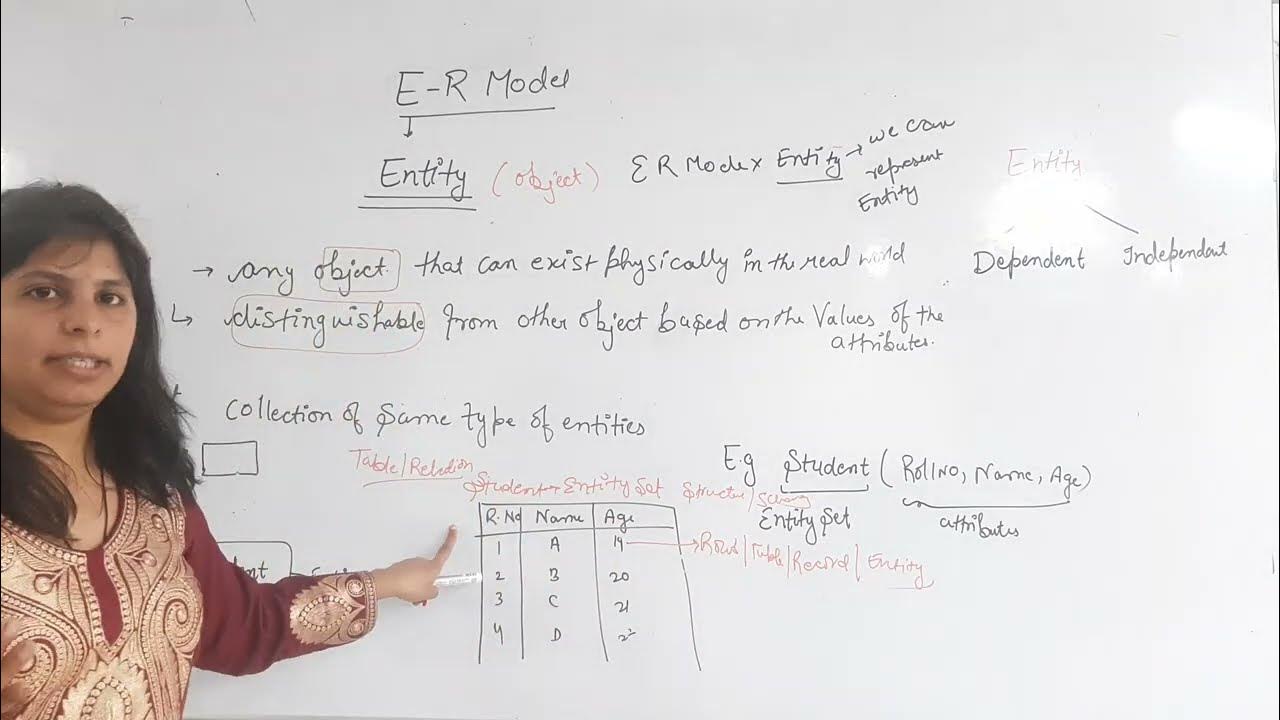 E-R Model
Entity (object) ER Mode x Entity → we can
represent
Entity
Entity
Dependent Independent
→ any object that can exist physically in the real world
↳ distinguishable from other object based on the Values of the
attributes.
Collection of Same type of entities
Table/Relation
E.g Student (RollNO, Name, Age)
Student → Entity Set Structure/Schema
Entity Set attributes
R.No Name Age
1 A 19 → Row/Table/Record/Entity
2 B 20
3 C 21
4 D